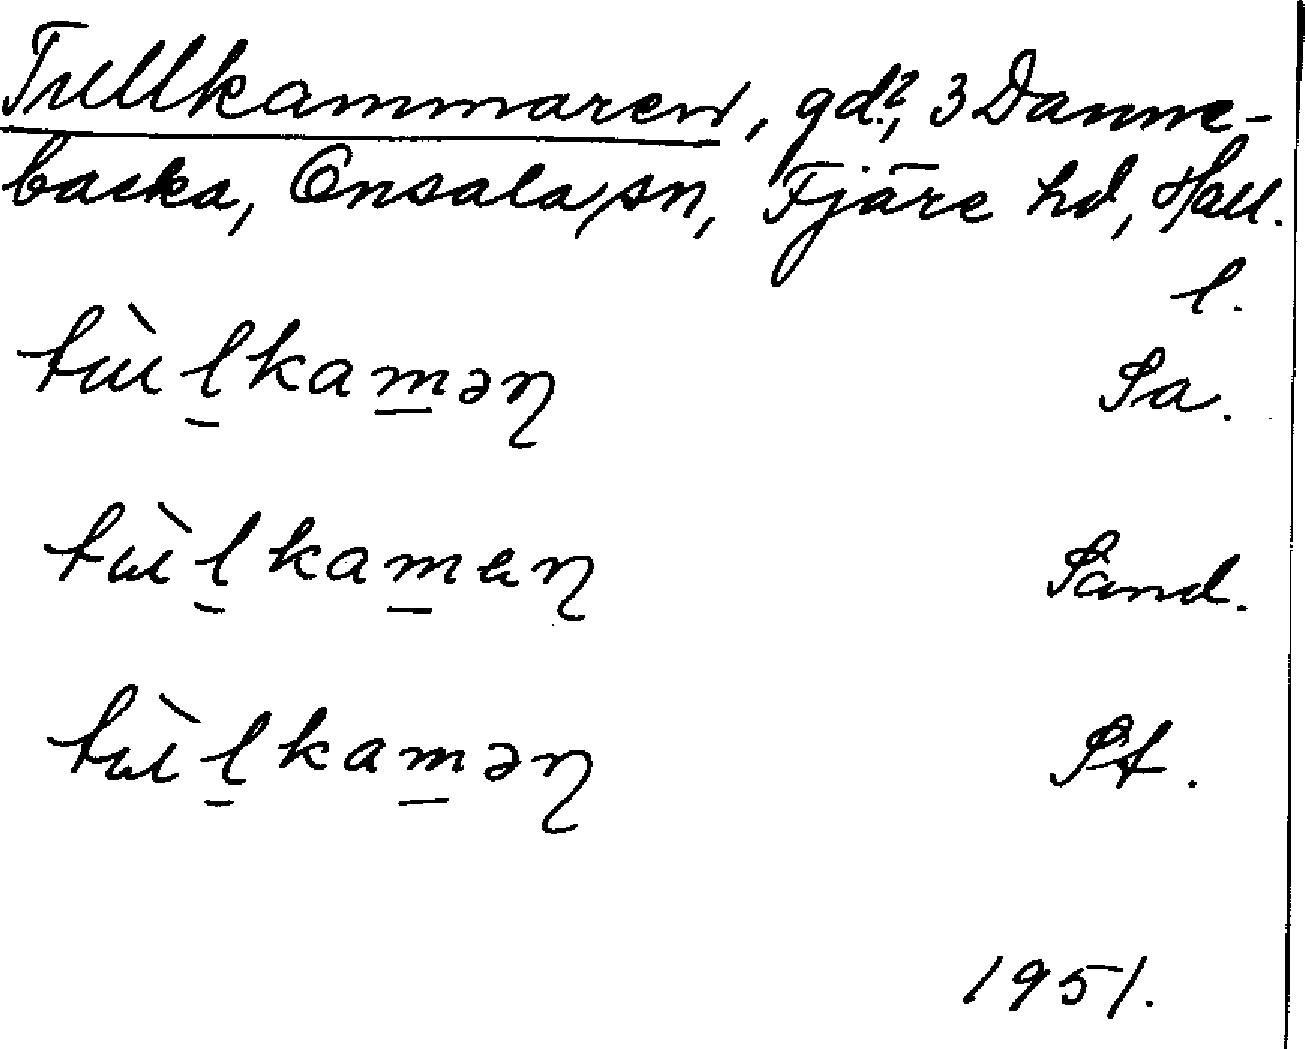 Tullkammaren, gd?, 3 Danne-
backa, Onsala sn, Fjäre hd, Hall.
l.
tùḻkama̱əɳ Sa.
tùḻkama̱eɳ Sand.
tùḻkama̱əɳ St.
1951.